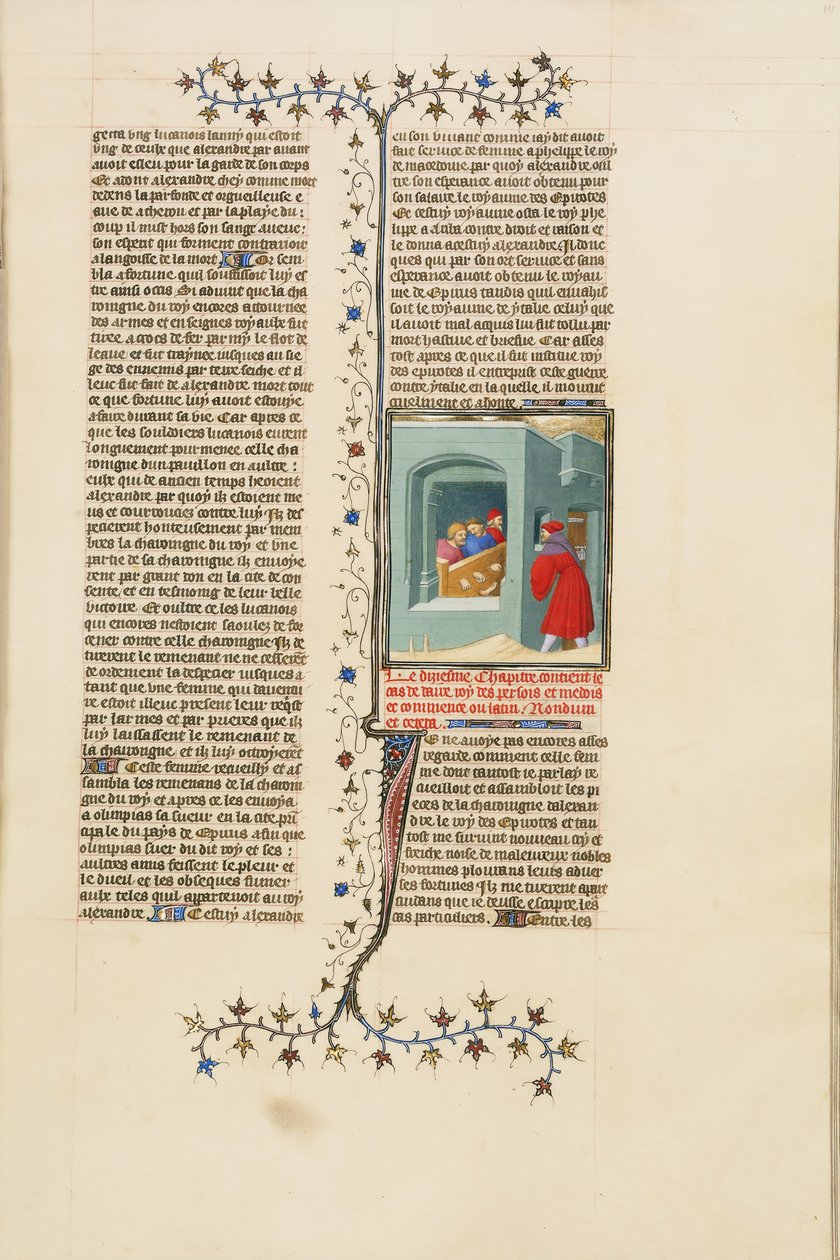 gecta ung lucanois banny qui estoit
ung de ceulx que alexandre par avant
avoit esleu pour la garde de son corps
Et adont alexandre chey comme mort
dedens la parfonde et orgueilleuse e
aue de acheron et par la playe du
coup il mist hors son sang avenc
son esperit qui forment contrarioit
a langoisse de la mort Or sem
bla a fortune quil souffisoit luy es
tre ainsi occis Si advint que la cha
roingne du roy encores attournee
des armes et enseignes royaulx fut
tiree a crocs de fer par my le flot de
leaue et fut traynee iusques au sie
ge des ennemis par terre seiche et il
leuc fut fait de alexandre mort tout
ce que fortune luy avoit essoye
a faire durant sa vie Car apres ce
que les souldoiers lucanois eurent
longuement pourmenee celle cha
roingne dun pavillon en aultre
ceulx qui de ancien temps heoient
alexandre par quoy ilz estoient me
us et courroucez contre luy Ilz des
pecierent honteusement par mem
bres la charoingne du roy et une
partie de sa charoingne ilz envoye
rent par grant don en la cite de con
sente, et en tesmoing de leur belle
victoire. Et oultre ce les lucanois
qui encores nestoient saoulez de for
cener contre celle charoingne Ilz de
tuerent le remenant ne ne cesserent
de ordement la despecier iusques a
tant que une femme qui daventu
re estoit illeuc present leur requist
par larmes et par prieres que ilz
luy laissassent le remenant de
la charoingne et ilz luy ottroyerent
Ceste femme recueilly et as
sambla les remenans de la charoin
gne du roy et apres ce les envoya
a olimpias sa sueur en la cite prin
cipale du pays de Epirus afin que
olimpias suer du dit roy et ses
aultres amis feissent le pleur et
le dueil et les obseques funer
aulx teles quil appartenoit au roy
alexandre. Cestuy alexandre
en son vivant comme iay dit avoit
fait service de femme a phelippe le roy
de macedoine par quoy alexandre oul
tre son esperance avoit obtenu pour
son salaire le royaume des Epirotes
Et cestuy royaume osta le roy phe
lippe a contre droit et raison et
le donna a cestuy alexandre. Il donc
ques qui par son ort service et sans
esperance avoit obtenu le royau
me de Epirus tandis quil envahis
soit le royaume de ytalie celuy que
il avoit mal acquis lui fut tollu par
mort hastive et briefue Car asses
tost apres ce que il fut institue roy
des epirotes il entreprist ceste guerre
contre ytalie en la quelle, il mourut
cruelment et a honte.
Le diziesme Chapitre, contient le
cas de daire roy des persois et medois
et commence ou latin. Nondum
et cetera.
Je ne avoye pas encores asses
regarde comment celle fem
me dont tantost ie parlay re
cueilloit et assambloit les pi
eces de la charoingne dalexan
dre le roy des Epirotes et tan
tost me survint nouveau cry et
freiche noise de maleureux nobles
hommes plourans leurs adver
ses fortunes Ilz me tuerent apart
cuidans que ie deusse escripre les
cas particuliers. Entre les